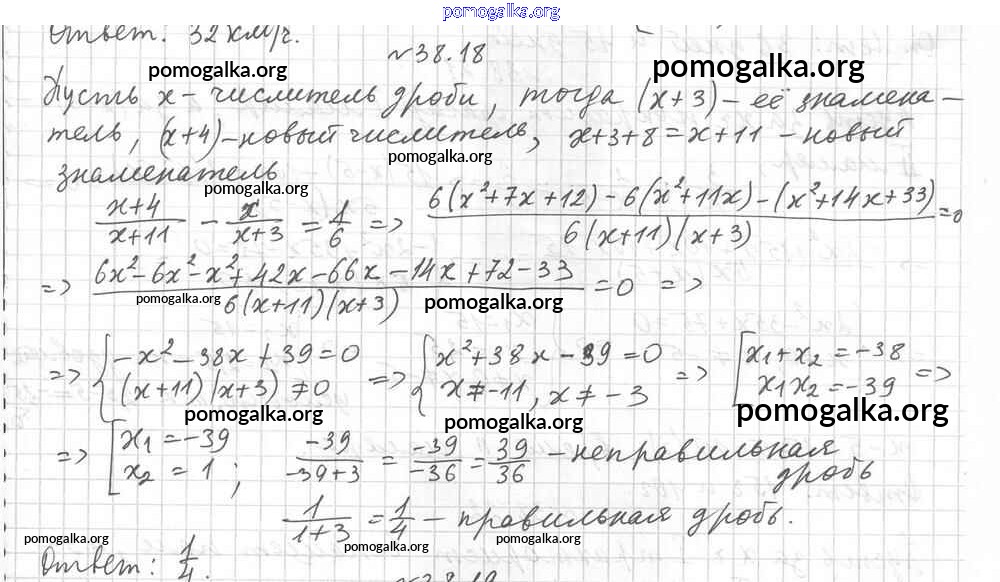 pomogalka.org
Ответ: 32 км/ч.
№38.18
pomogalka.org pomogalka.org
Пусть x - числитель дроби, тогда (x+3) - её знамена-
тель, (x+4) - новый числитель, x+3+8=x+11 - новый
pomogalka.org
знаменатель
pomogalka.org
(x+4)/(x+11) - x/(x+3) = 1/6 => (6(x²+7x+12)-6(x²+11x)-(x²+14x+33))/(6(x+11)(x+3)) =0
=> (6x²-6x²-x²+42x-66x-14x+72-33)/(6(x+11)(x+3)) =0 =>
pomogalka.org pomogalka.org
=> { -x²-38x+39=0 => { x²+38x-39=0 => [ x₁+x₂=-38
(x+11)(x+3)≠0 x≠-11, x≠-3 x₁x₂=-39 =>
pomogalka.org pomogalka.org pomogalka.org
=> [ x₁=-39 -39/(-39+3) = -39/-36 = 39/36 - неправильная
x₂=1; дробь
1/(1+3) = 1/4 - правильная дробь.
pomogalka.org pomogalka.org pomogalka.org pomogalka.org
Ответ: 1/4.
№38.19